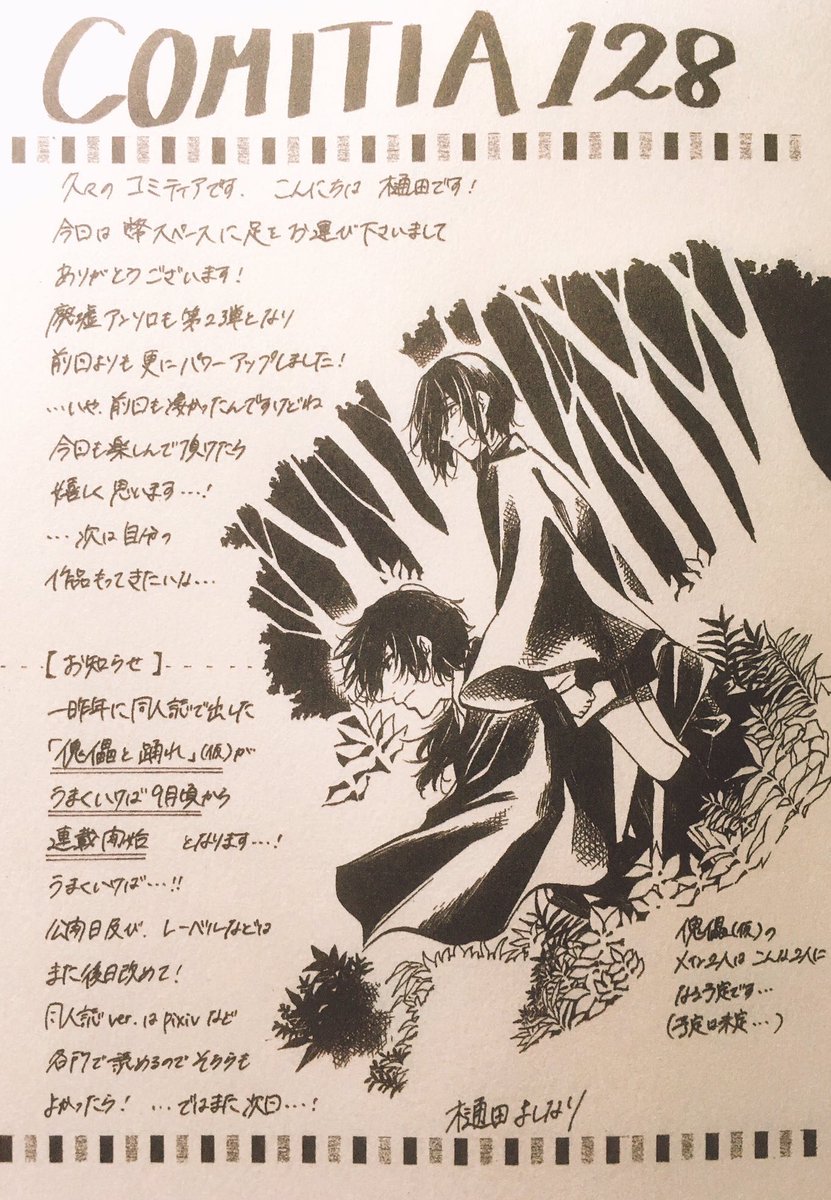 COMITIA 128
久々の コミティアです、 こんにちは 樋田です!
今日は 弊スペースに足をお運び下さいまして
ありがとうございます!
廃墟アンソロも第23弾となり
前回よりも更にパワーアップしました!
…いや、前回も凄かったんですけどね
今回も楽しんで頂けたら
嬉しく思います…!
…次は自分の
作品もってきたいな…
【お知らせ】
一昨年に同人誌で出した
「傀儡と踊れ」(仮)が
うまくいけば9月頃から
連載開始 となります…!
うまくいけば…!!
公開日及び、レーベルなどは
また後日改めて!
同人誌ver.はpixivなど
各所で読めるのでそちらも
よかったら! …ではまた次回…!
傀儡(仮)の
メイン2人はこんな2人に
なる予定です…
(予定は未定…)
樋田よしなり